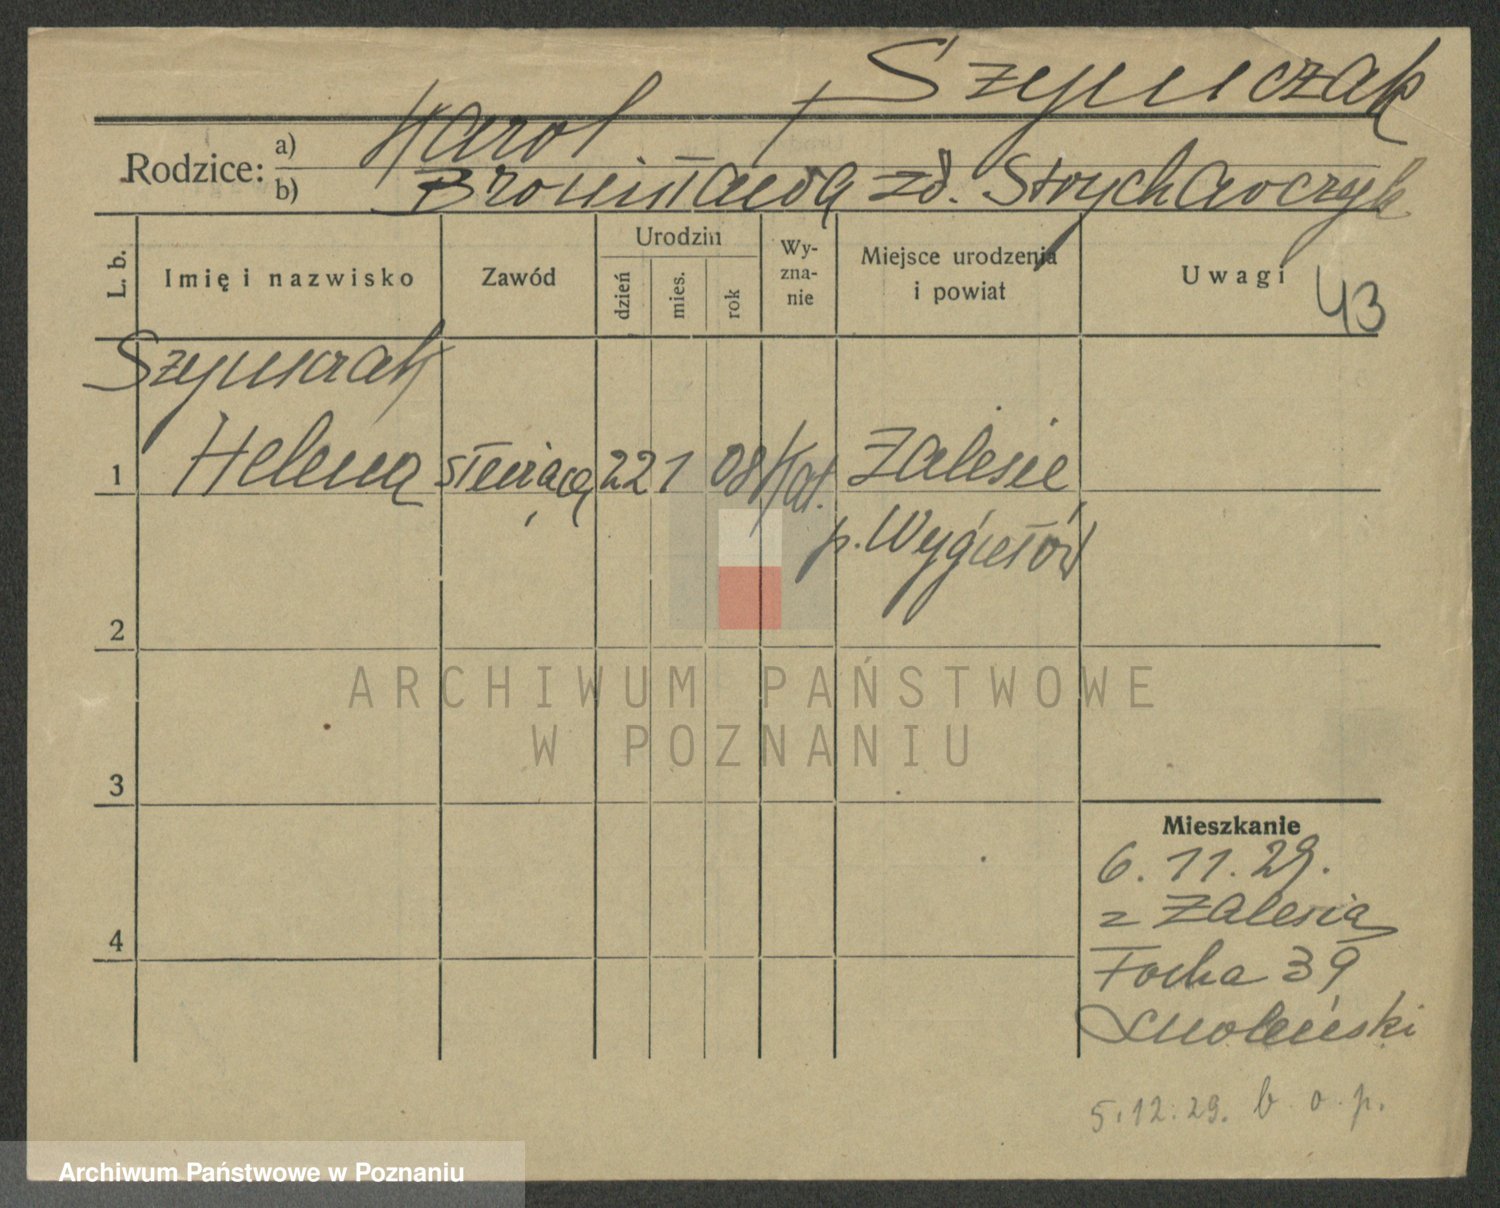 Szymczak
Rodzice: a) Karol
b) Bronisława zd. Strycharczyk
L. b. Imię i nazwisko Zawód Urodzin dzień mies. rok Wy-zna-nie Miejsce urodzenia i powiat Uwagi 43
Szymczak
1 Helena służąca 22 1 08 Kat. Zalesie
p. Wygiełdów
2
ARCHIWUM PAŃSTWOWE
W POZNANIU
3
Mieszkanie
6. 11. 29.
z Zalesia
4
Focha 39
Smoleński
5.12.29. b. o. p.
Archiwum Państwowe w Poznaniu